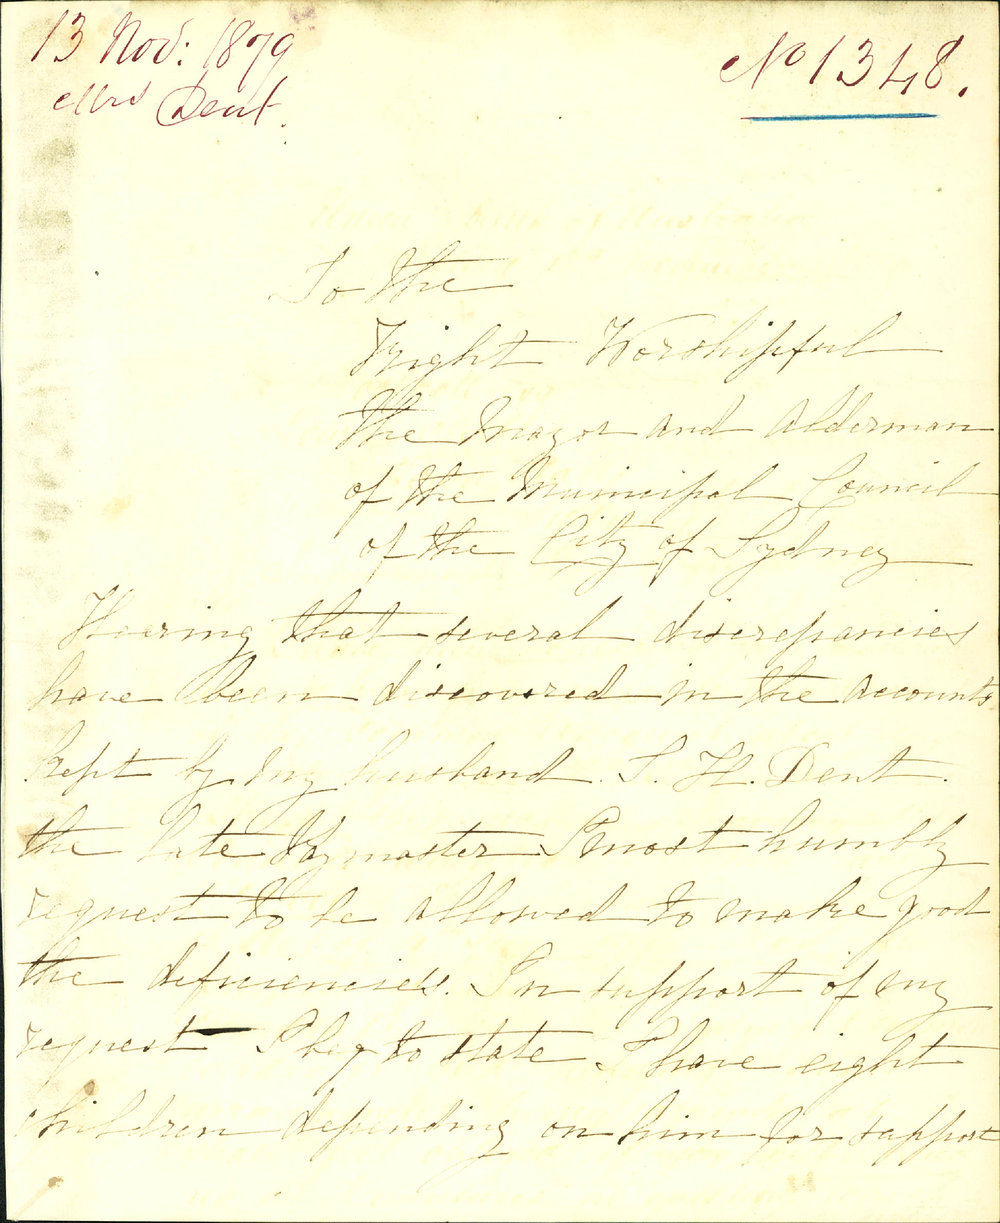 13 Nov: 1879
Mrs Dent.
No 1348.
To the
Right Worshipful
the Mayor and Alderman
of the Municipal Council
of the City of Sydney
Hearing that several discrepancies
have been discovered in the accounts
kept by my husband S. H. Dent.
the late Paymaster I most humbly
request to be allowed to make good
the deficiencies. In support of my
request I beg to state I have eight
children depending on him for support